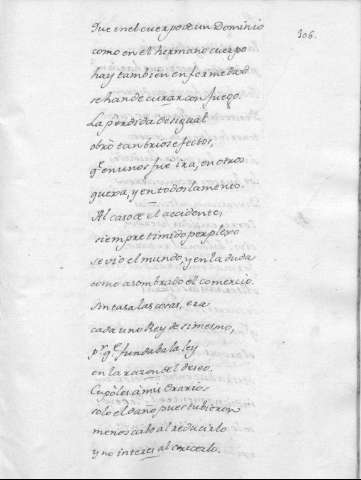 306.
Que en el cuerpo de un Dominio
como en el hermano cuerpo
hay tambien enfermedad
se han de curar con fuego.
La perdida desigual
obró tan brios efectos,
q.e en unos fue ira, en otros
quexa, y en todos lamento.
Al caso de el accidente,
siempre timido perplexo
se vio el mundo, y en la duda
como asombrado el comercio.
sin tasa las cosas, era
cada uno Rey de si mesmo,
p.r q.e fundaba la ley
en la razon del deseo.
Cupóles à mis Erarios
solo el daño pues tubieron
menoscabo al reducirlo
y no interes al crecerlo.